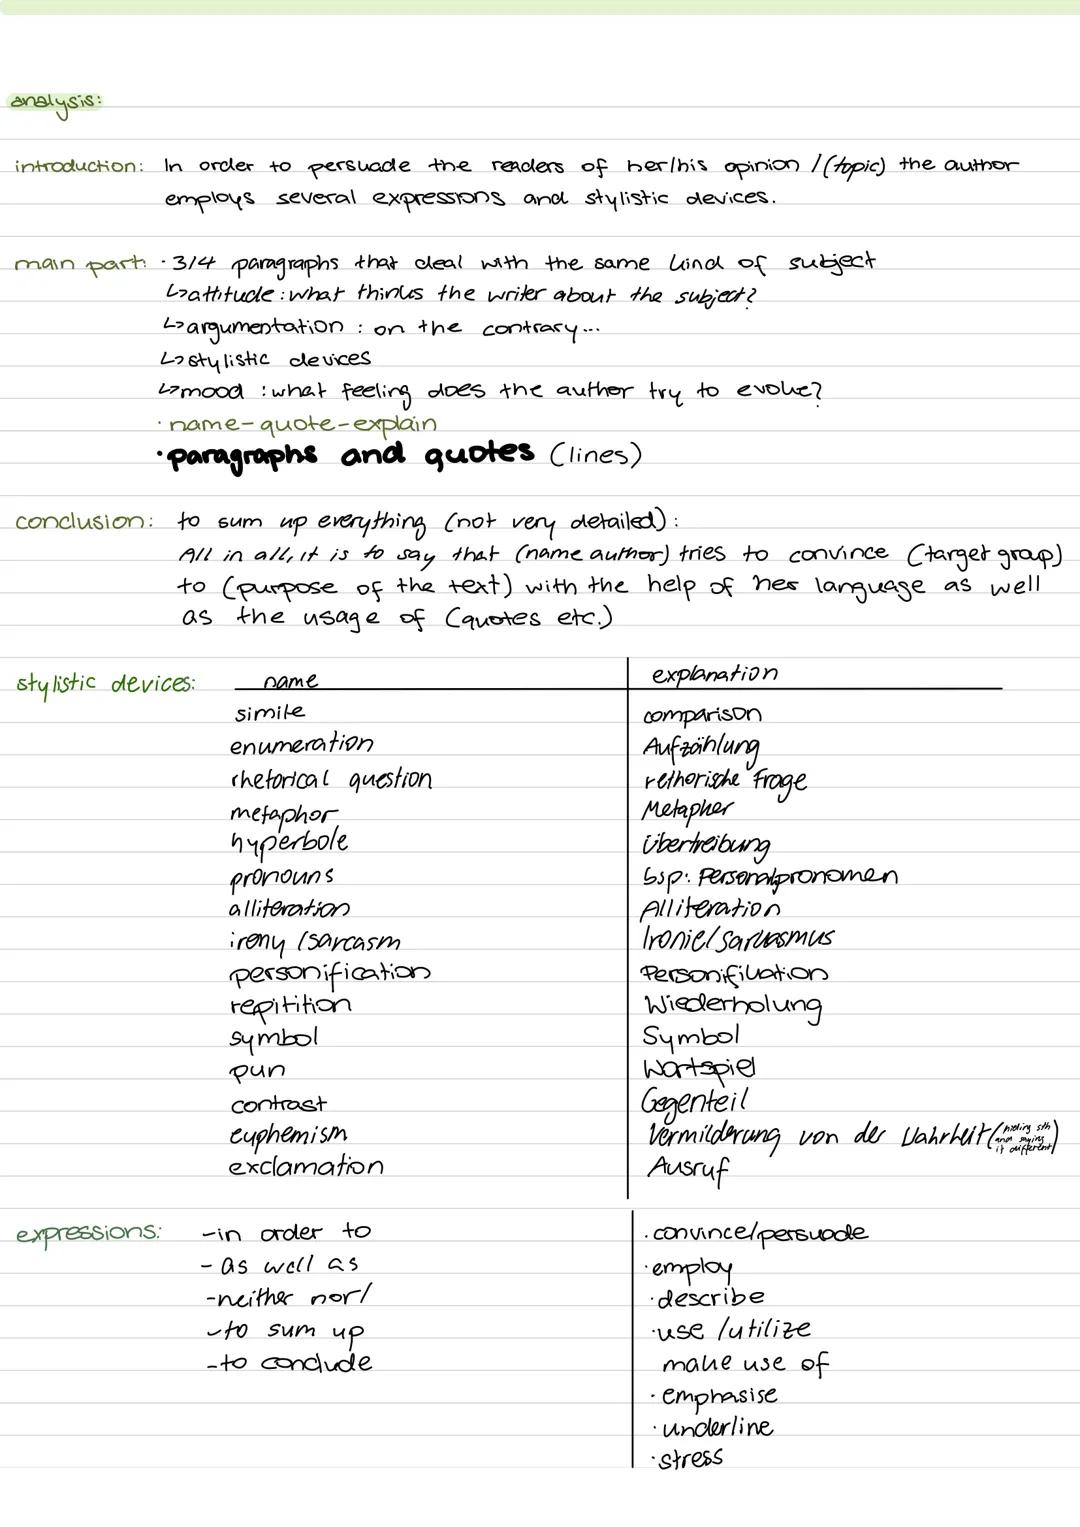 analysis:
introduction: In order to persuade the readers of her/his opinion / (topic) the author
employs several expressions and stylistic devices.
main part: · 3/4 paragraphs that deal with the same kind of subject
↳ attitude: what thinks the writer about the subject?
↳ argumentation: on the contrary...
↳ stylistic devices
↳ mood: what feeling does the author try to evoke?
· name-quote-explain
· paragraphs and quotes (lines)
conclusion: to sum up everything (not very detailed):
All in all, it is to say that (name author) tries to convince (target group)
to (purpose of the text) with the help of her language as well
as the usage of (quotes etc.)
stylistic devices: name explanation
simile comparison
enumeration Aufzählung
rhetorical question rethorische Frage
metaphor Metapher
hyperbole Übertreibung
pronouns bsp: Personalpronomen
alliteration Alliteration
irony /sarcasm Ironie/Sarkasmus
personification Personifikation
repitition Wiederholung
symbol Symbol
pun Wortspiel
contrast Gegenteil
euphemism Vermilderung von der Wahrheit (hiding sth and saying it different)
exclamation Ausruf
expressions: - in order to · convince/persuade
- as well as · employ
- neither nor/ · describe
- to sum up · use /utilize
- to conclude make use of
· emphasise
· underline
· stress